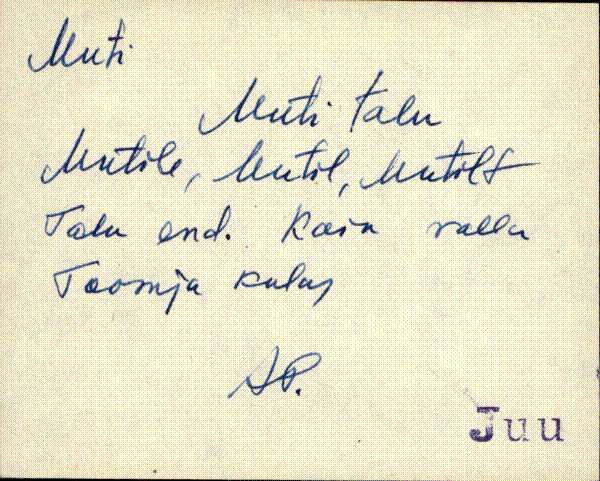 Muti
Muti talu
Mutile, Mutil, Mutilt
Talu end. Kaiu valla
Toomja külas
AP.
Juu